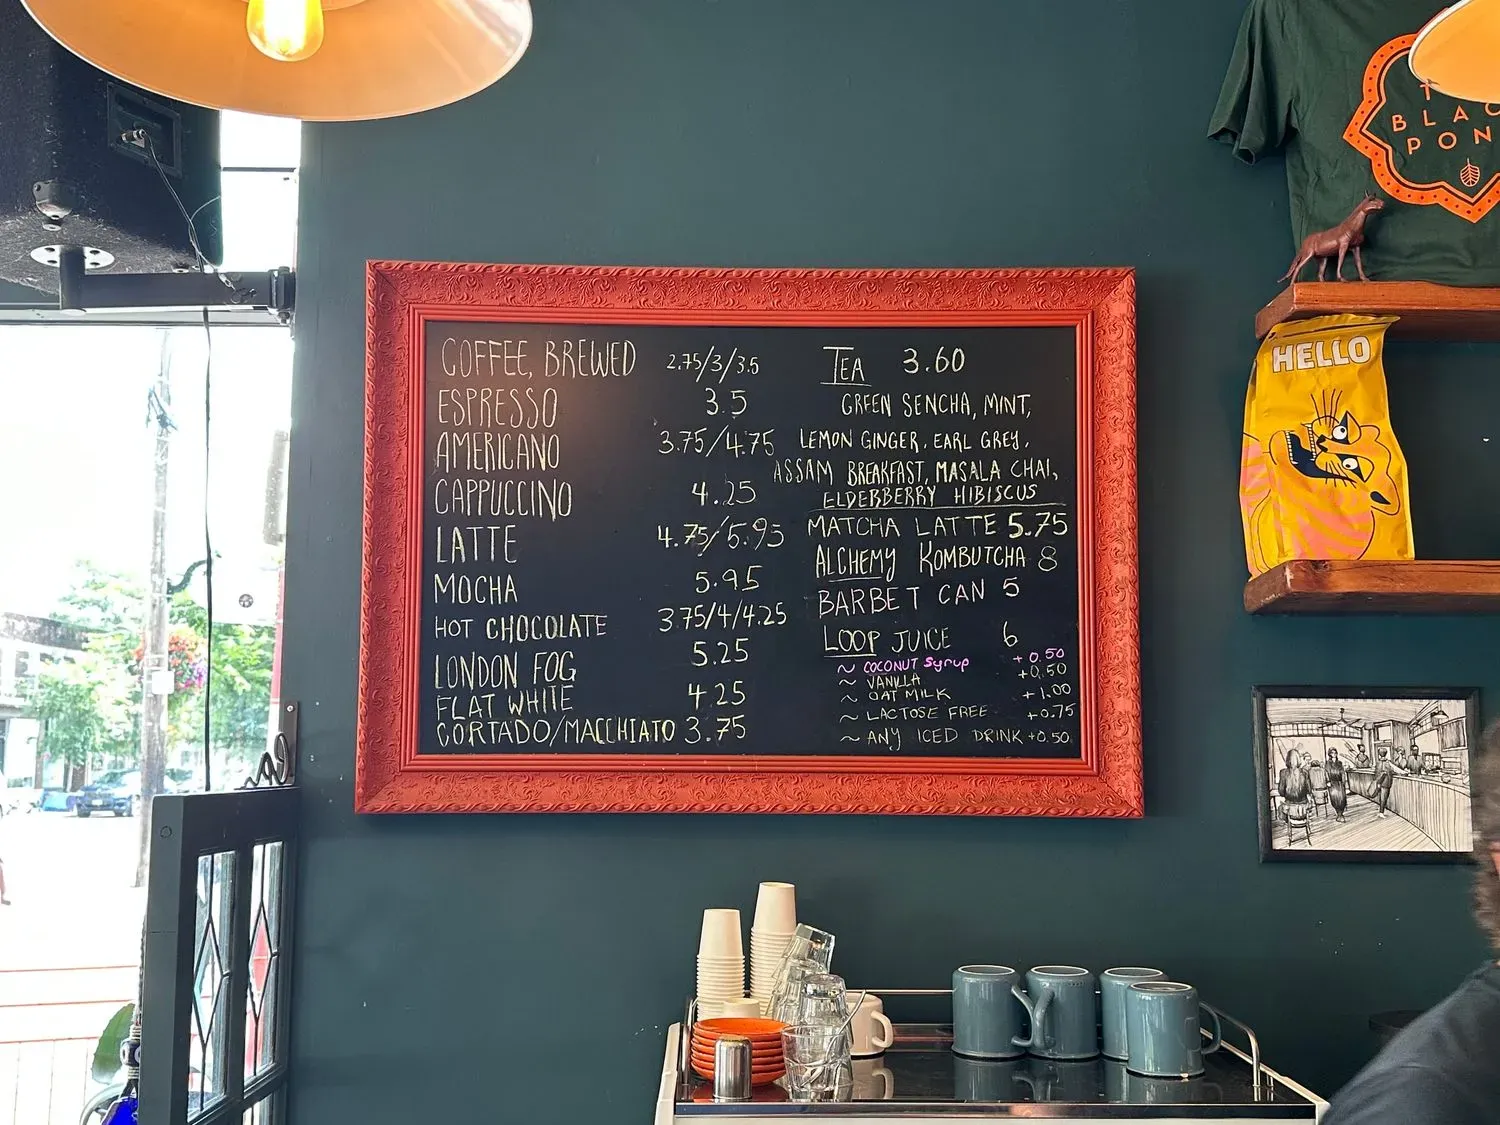 COFFEE, BREWED 2.75/3/3.5
ESPRESSO 3.5
AMERICANO 3.75/4.75
CAPPUCCINO 4.25
LATTE 4.75/5.95
MOCHA 5.95
HOT CHOCOLATE 3.75/4/4.25
LONDON FOG 5.25
FLAT WHITE 4.25
CORTADO/MACCHIATO 3.75
TEA 3.60
GREEN SENCHA, MINT,
LEMON GINGER, EARL GREY,
ASSAM BREAKFAST, MASALA CHAI,
ELDERBERRY HIBISCUS
MATCHA LATTE 5.75
ALCHEMY KOMBUTCHA 8
BARBET CAN 5
LOOP JUICE 6
~ COCONUT Syrup +0.50
~ VANILLA +0.50
~ OAT MILK +1.00
~ LACTOSE FREE +0.75
~ ANY ICED DRINK +0.50
BLAC
PON
HELLO